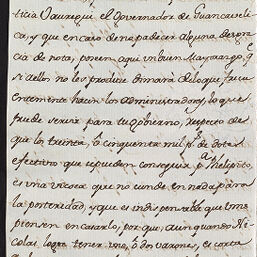 ticia Jauregui el Governador de Guancaveli-
ca, y que en caso de no padecer alguna desgra-
cia de nota, ponen aqui un buen Mayorazgo, q.e
si de los no les produce de lo que frecu-
entemente hacen los Administradores, lo que
puede servir para tu Govierno, respecto de
que los treinta, ó cinquenta mil p.s de dotes
efectivo que se pueden conseguir p.a Phelipito,
es una vicoca que no cunde en nada para
la posteridad, y que es indispensable que Vms
piensen en casarlo, por que, aunquando Ni-
colas logra tener uno, ó dos varones, es corta